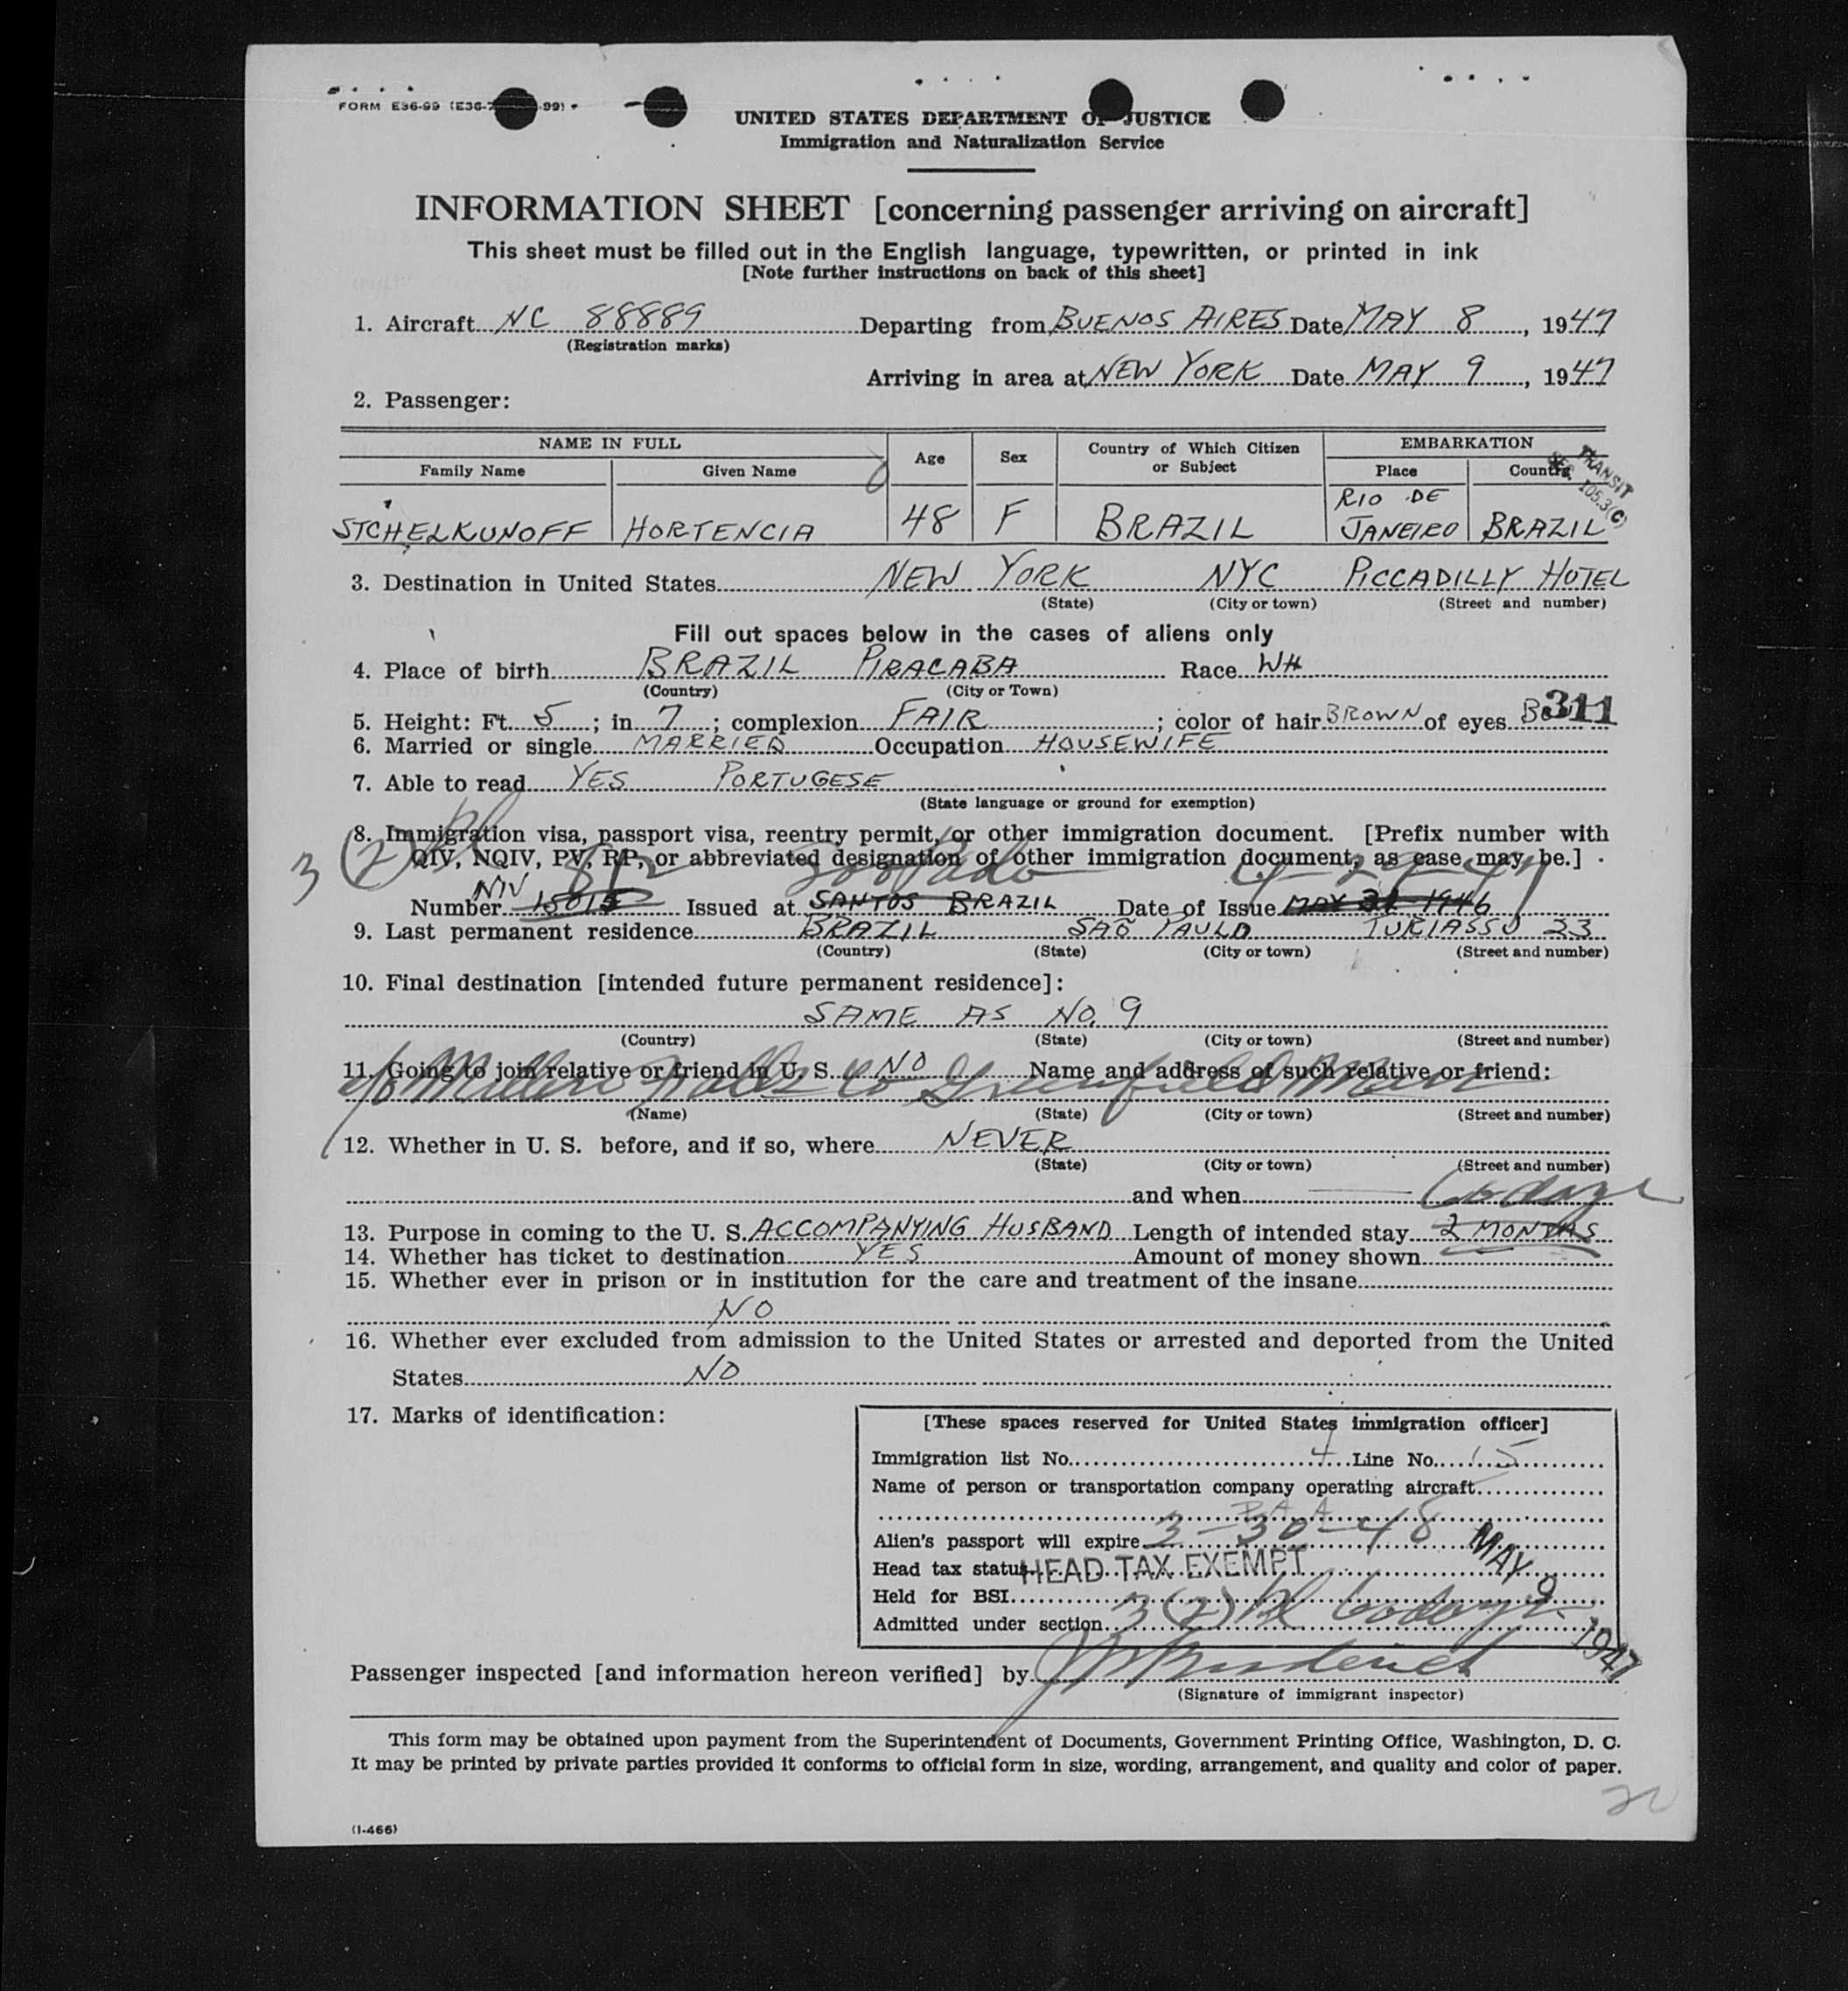 FORM E36-99 (E36- 99)
UNITED STATES DEPARTMENT OF JUSTICE
Immigration and Naturalization Service
INFORMATION SHEET [concerning passenger arriving on aircraft]
This sheet must be filled out in the English language, typewritten, or printed in ink
[Note further instructions on back of this sheet]
1. Aircraft NC 88889 Departing from BUENOS AIRES Date MAY 8, 1947
(Registration marks)
Arriving in area at NEW YORK Date MAY 9, 1947
2. Passenger:
NAME IN FULL Age Sex Country of Which Citizen or Subject EMBARKATION
Family Name Given Name Place Country
TRANSIT
SEC. 105.3(C)
STCHELKUNOFF HORTENCIA 48 F BRAZIL RIO DE JANEIRO BRAZIL
3. Destination in United States NEW YORK NYC PICCADILLY HOTEL
(State) (City or town) (Street and number)
Fill out spaces below in the cases of aliens only
4. Place of birth BRAZIL PIRACABA Race WH
(Country) (City or Town)
5. Height: Ft. 5; in 7; complexion FAIR; color of hair BROWN of eyes
311
6. Married or single MARRIED Occupation HOUSEWIFE
7. Able to read YES PORTUGESE
(State language or ground for exemption)
8. Immigration visa, passport visa, reentry permit, or other immigration document. [Prefix number with
3(2)
QIV, NQIV, PV, RP, or abbreviated designation of other immigration document, as case may be.]
812 Sao Paulo 4-29-47
NIV
Number 15015 Issued at SANTOS BRAZIL Date of Issue MAY 31 1946
9. Last permanent residence BRAZIL SAO PAULO TURIASSU 23
(Country) (State) (City or town) (Street and number)
10. Final destination [intended future permanent residence]:
SAME AS NO. 9
(Country) (State) (City or town) (Street and number)
11. Going to join relative or friend in U. S. NO Name and address of such relative or friend:
c/o Millers Falls Co Greenfield Mass
(Name) (State) (City or town) (Street and number)
12. Whether in U. S. before, and if so, where NEVER
(State) (City or town) (Street and number)
and when
60 days
13. Purpose in coming to the U. S. ACCOMPANYING HUSBAND Length of intended stay 2 MONTHS
14. Whether has ticket to destination YES Amount of money shown
15. Whether ever in prison or in institution for the care and treatment of the insane
NO
16. Whether ever excluded from admission to the United States or arrested and deported from the United
States NO
17. Marks of identification:
[These spaces reserved for United States immigration officer]
Immigration list No. 4 Line No. 15
Name of person or transportation company operating aircraft
PAA
Alien's passport will expire 3-30-48
Head tax status HEAD TAX EXEMPT
MAY 9 1947
Held for BSI
Admitted under section 3(2) 60 days
Passenger inspected [and information hereon verified] by
(Signature of immigrant inspector)
This form may be obtained upon payment from the Superintendent of Documents, Government Printing Office, Washington, D. C.
It may be printed by private parties provided it conforms to official form in size, wording, arrangement, and quality and color of paper.
(I-466)